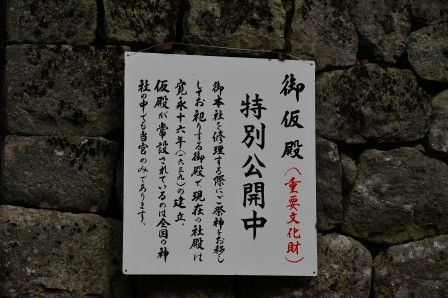 御仮殿(重要文化財)
特別公開中
御本社を修理する際にご祭神をお移し
してお祀りする御殿で現在の社殿は
寛永十六年(一六三九)の建立。
仮殿が常設されているのは全国の神
社の中でも当宮のみであります。